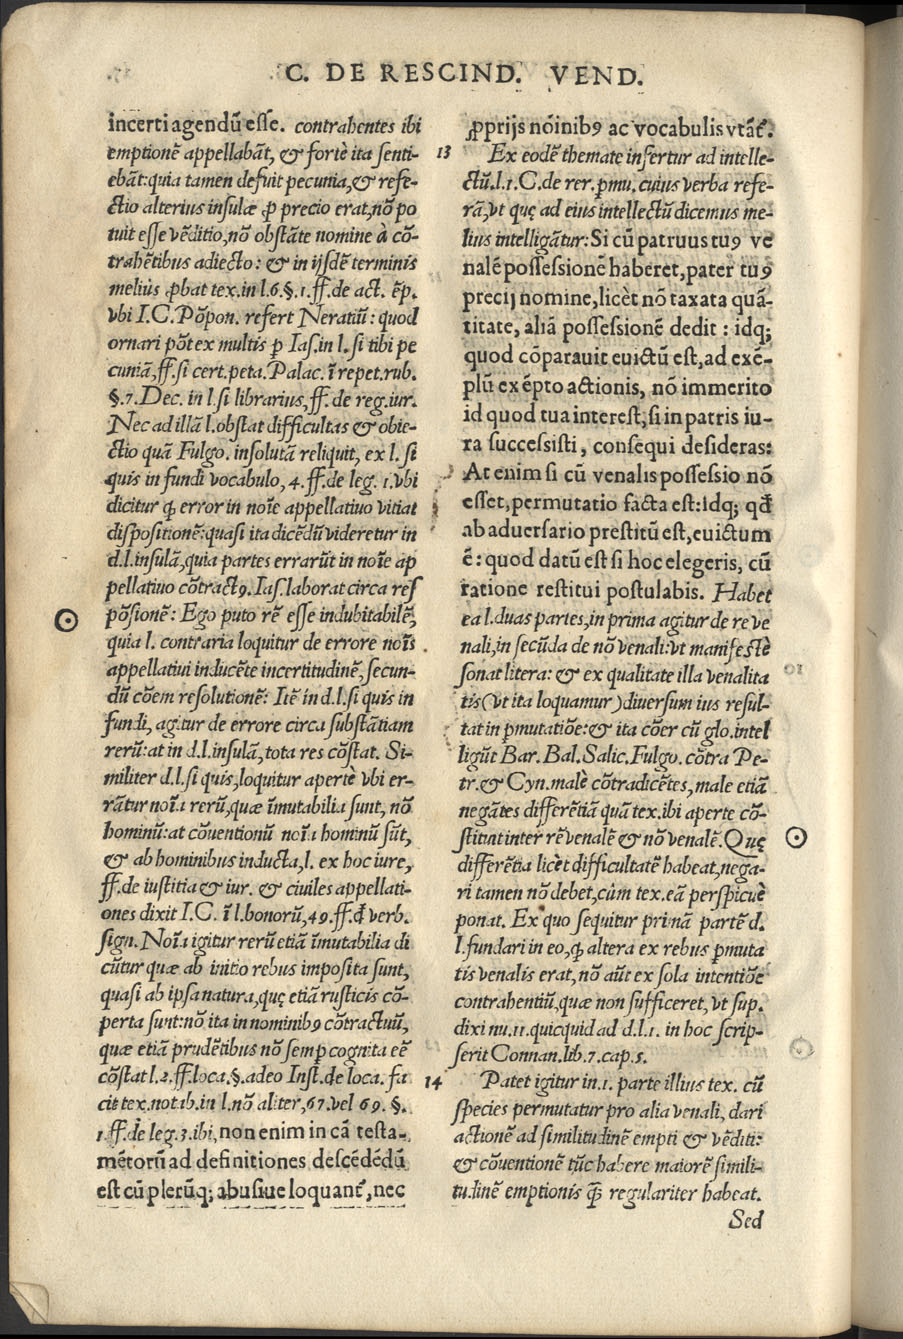 C. DE RESCIND. VEND.
incerti agendũ esse. contrahentes ibi
emptionẽ appellabãt, & fortè ita senti-
ebãt: quia tamen defuit pecunia, & refe-
ctio alterius insulæ ꝓ precio erat, nõ po
tuit esse vẽditio, nõ obstãte nomine à cõ-
trahẽtibus adiecto: & in ijsdẽ terminis
meliùs ꝓbat tex. in l.6.§.1.ff.de act. ẽp.
vbi I.C. Põpon. refert Neratiũ: quod
ornari põt ex multis ꝑ Ias. in l. si tibi pe
cuniã, ff. si cert. peta. Palac. ĩ repet. rub.
§.7. Dec. in l. si librarius, ff. de reg. iur.
Nec ad illã l. obstat difficultas & obie-
ctio quã Fulgo. insolutã reliquit, ex l. si
quis in fundi vocabulo, 4. ff. de leg. 1. vbi
dicitur ꝙ error in noĩe appellatiuo vitiat
dispositionẽ: quasi ita dicẽdũ videretur in
d.l. insulã, quia partes errarũt in noĩe ap
pellatiuo cõtractꝰ. Ias. laborat circa res
põsionẽ: Ego puto rẽ esse indubitabilẽ,
quia l. contraria loquitur de errore noĩs
appellatiui inducẽte incertitudinẽ, secun-
dũ cõem resolutionẽ: Itẽ in d.l. si quis in
fundi, agitur de errore circa substãtiam
rerũ: at in d.l. insulã, tota res cõstat. Si-
militer d.l. si quis, loquitur apertè vbi er-
rãtur noĩa rerũ, quæ ĩmutabilia sunt, nõ
hominũ: at cõuentionũ noĩa hominũ sũt,
& ab hominibus inducta, l. ex hoc iure,
ff. de iustitia & iur. & ciuiles appellati-
ones dixit I.C. ĩ l. bonorũ, 49. ff. đ verb.
sign. Noĩa igitur rerũ etiã ĩmutabilia di
cũtur quæ ab initio rebus imposita sunt,
quasi ab ipsa natura, quę etiã rusticis cõ-
perta sunt: nõ ita in nominibꝰ cõtractuũ,
quæ etiã prudẽtibus nõ semꝑ cognita eẽ
cõstat l.2. ff. loca. §. adeo Inst. de loca. fa
cit tex. notab. in l. nõ aliter, 67. vel 69. §.
1. ff. de leg. 3. ibi, non enim in cã testa-
mẽtorũ ad definitiones descẽdẽdũ
est cũ plerũqꝫ abusiue loquant᷑, nec
ꝓprijs nõinibꝰ ac vocabulis vtãt᷑.
13 Ex eodẽ themate infertur ad intelle-
ctũ. l.1. C. de rer. ꝑmu. cuius verba refe-
rã, vt quę ad eius intellectũ dicemus me-
lius intelligãtur: Si cũ patruus tuꝰ ve
nalẽ possessionẽ haberet, pater tuꝰ
precij nomine, licèt nõ taxata quã-
titate, aliã possessionẽ dedit: idqꝫ
quod cõparauit euictũ est, ad exẽ-
plũ ex ẽpto actionis, nõ immerito
id quod tua interest, si in patris iu-
ra successisti, consequi desideras:
At enim si cũ venalis possessio nõ
esset, permutatio facta est: idqꝫ qđ
ab aduersario prestitũ est, euictum
ẽ: quod datũ est si hoc elegeris, cũ
ratione restitui postulabis. Habet
ea l. duas partes, in prima agitur de re ve
nali, in secũda de nõ venali: vt manifestè
sonat litera: & ex qualitate illa venalita
tis (vt ita loquamur) diuersum ius resul-
tat in ꝑmutatiõe: & ita cõer cũ glo. intel
ligũt Bar. Bal. Salic. Fulgo. cõtra Pe-
tr. & Cyn. malè cõtradicẽtes, male etiã
negãtes differẽtiã quã tex. ibi aperte cõ-
stituit inter rẽ venalẽ & nõ venalẽ. Quę
differẽtia licèt difficultatẽ habeat, nega-
ri tamen nõ debet, cùm tex. eã perspicuè
ponat. Ex quo sequitur primã partẽ d.
l. fundari in eo, ꝙ altera ex rebus ꝑmuta
tis venalis erat, nõ aũt ex sola intentiõe
contrahentiũ, quæ non sufficeret, vt sup.
dixi nu. 11. quicquid ad d.l.1. in hoc scrip-
serit Connan. lib. 7. cap. 5.
14 Patet igitur in. 1. parte illius tex. cũ
species permutatur pro alia venali, dari
actionẽ ad similitudinẽ empti & vẽditi:
& cõuentionẽ tũc habere maiorẽ simili-
tudinẽ emptionis ꝙ̃ regulariter habeat.
Sed